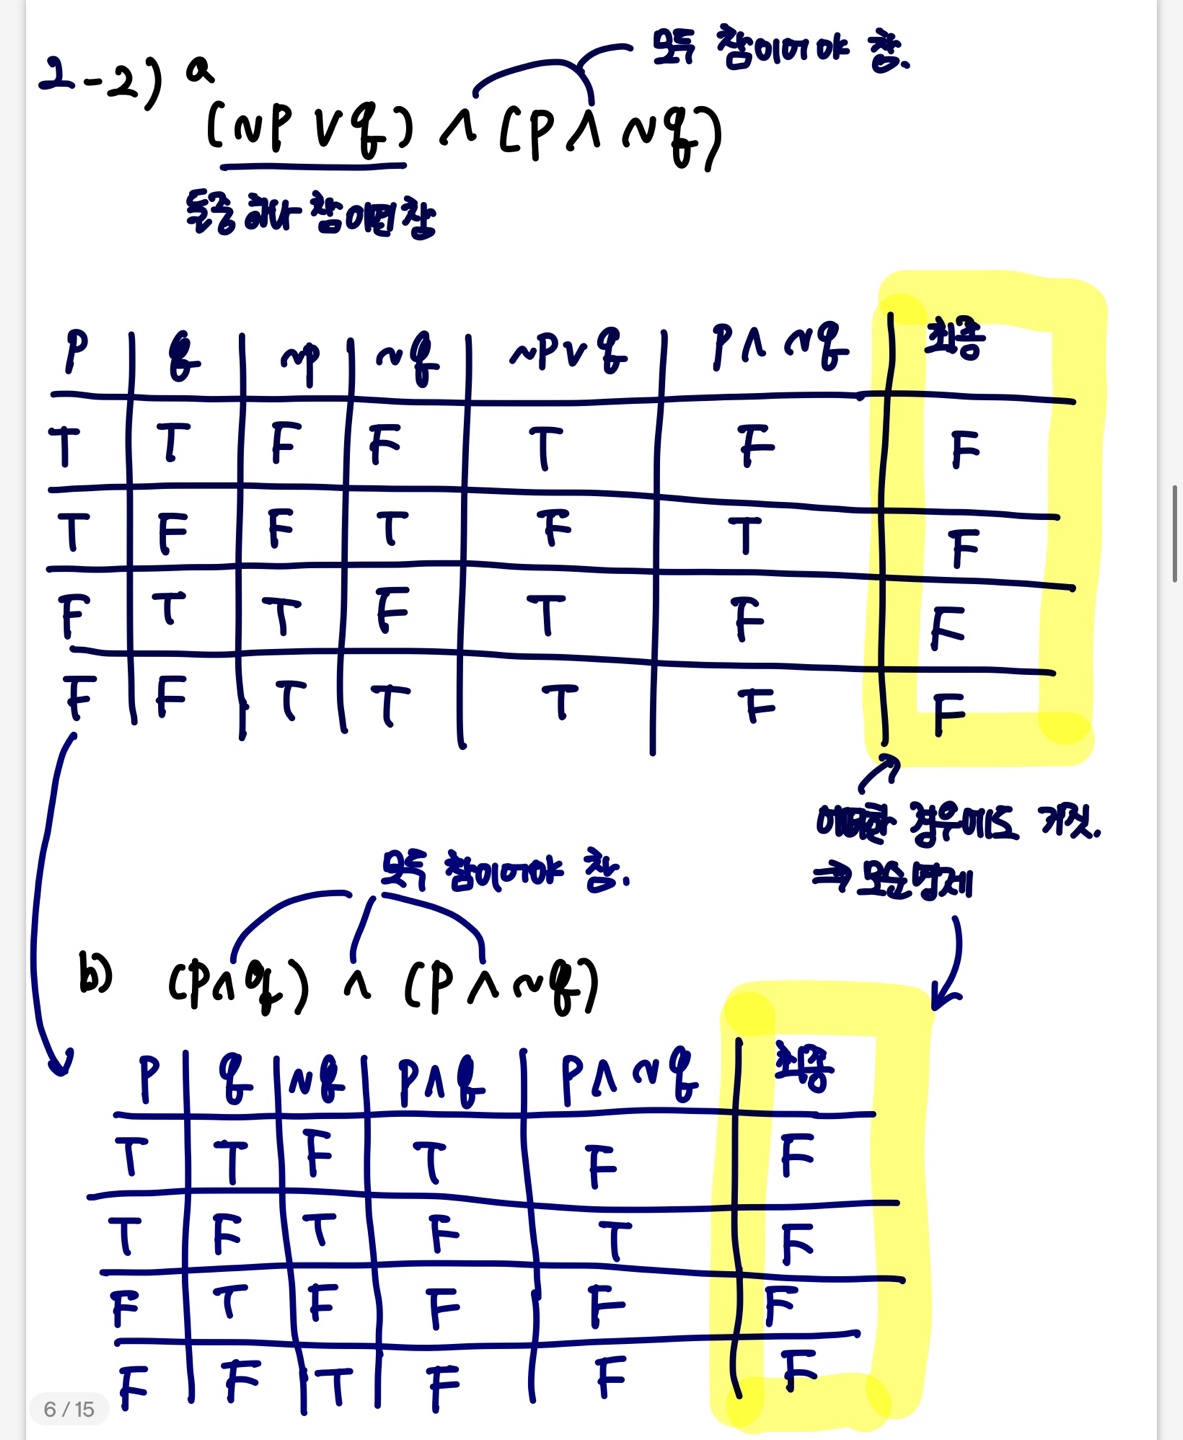 2-2) a
모두 참이어야 참.
(~p∨q) ∧ (p∧~q)
둘중 하나 참이면 참
p q ~p ~q ~p∨q p∧~q 최종
T T F F T F F
T F F T F T F
F T T F T F F
F F T T T F F
어떠한 경우에도 거짓.
⇒ 모순명제
모두 참이어야 참.
b) (p∧q) ∧ (p∧~q)
p q ~q p∧q p∧~q 최종
T T F T F F
T F T F T F
F T F F F F
F F T F F F
6 / 15